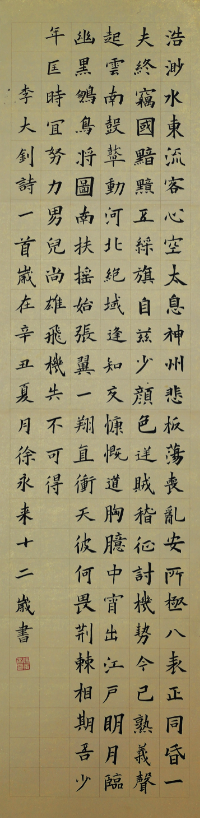 浩渺水東流客心空太息神州悲板蕩喪亂安所極八表正同昏一
夫終竊國黯黮五綵旗自茲少顏色逆賊稽征討機勢今已熟義聲
起雲南鼓鼙動河北絕域逢知交慷慨道胸臆中宵出江戶明月臨
幽黑鵬鳥將圖南扶搖始張翼一翔直衝天彼何畏荊棘相期吾少
年匡時宜努力男兒尚雄飛機失不可得
李大釗詩一首歲在辛丑夏月徐永來十二歲書